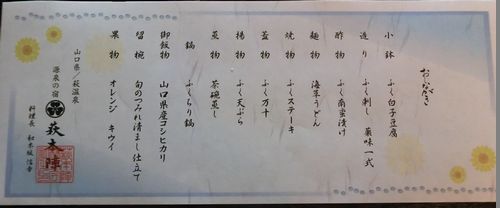 おしながき
小鉢 ふく白子豆腐
造り ふく刺し 薬味一式
酢物 ふく南蛮漬け
麺物 海草うどん
焼物 ふくステーキ
蓋物 ふく万十
揚物 ふく天ぷら
蒸物 茶碗蒸し
鍋 ふくちり鍋
御飯物 山口県産コシヒカリ
留椀 旬のつみれ清まし仕立て
果物 オレンジ キウイ
山口県/萩温泉
源泉の宿
萩本陣
料理長